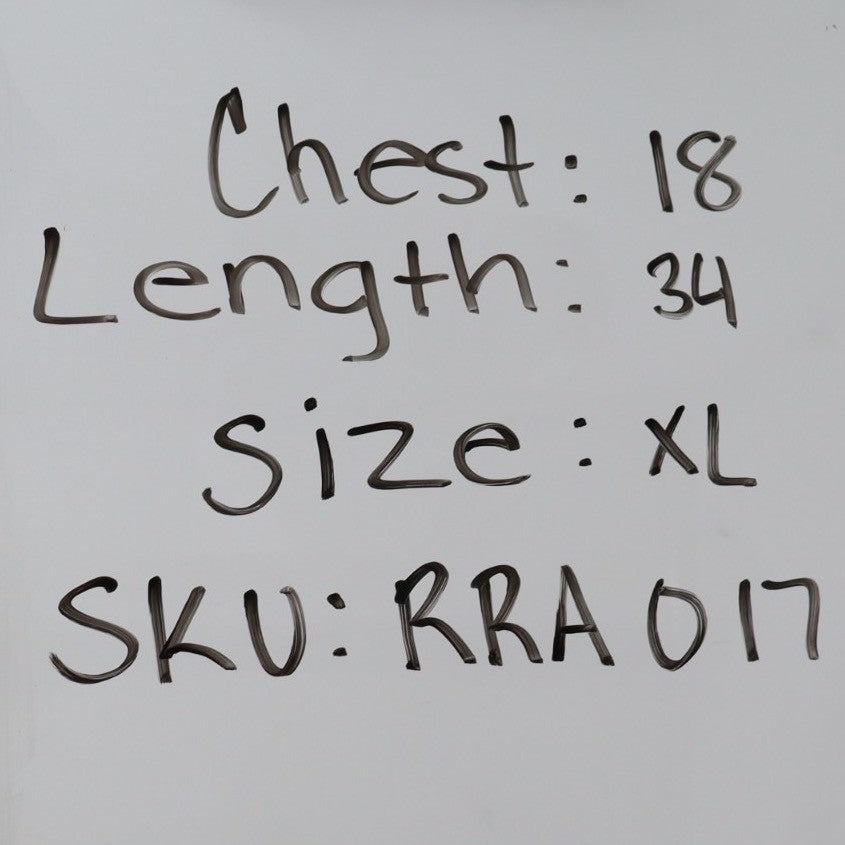 Chest: 18
Length: 34
Size: XL
SKU: RRA 017